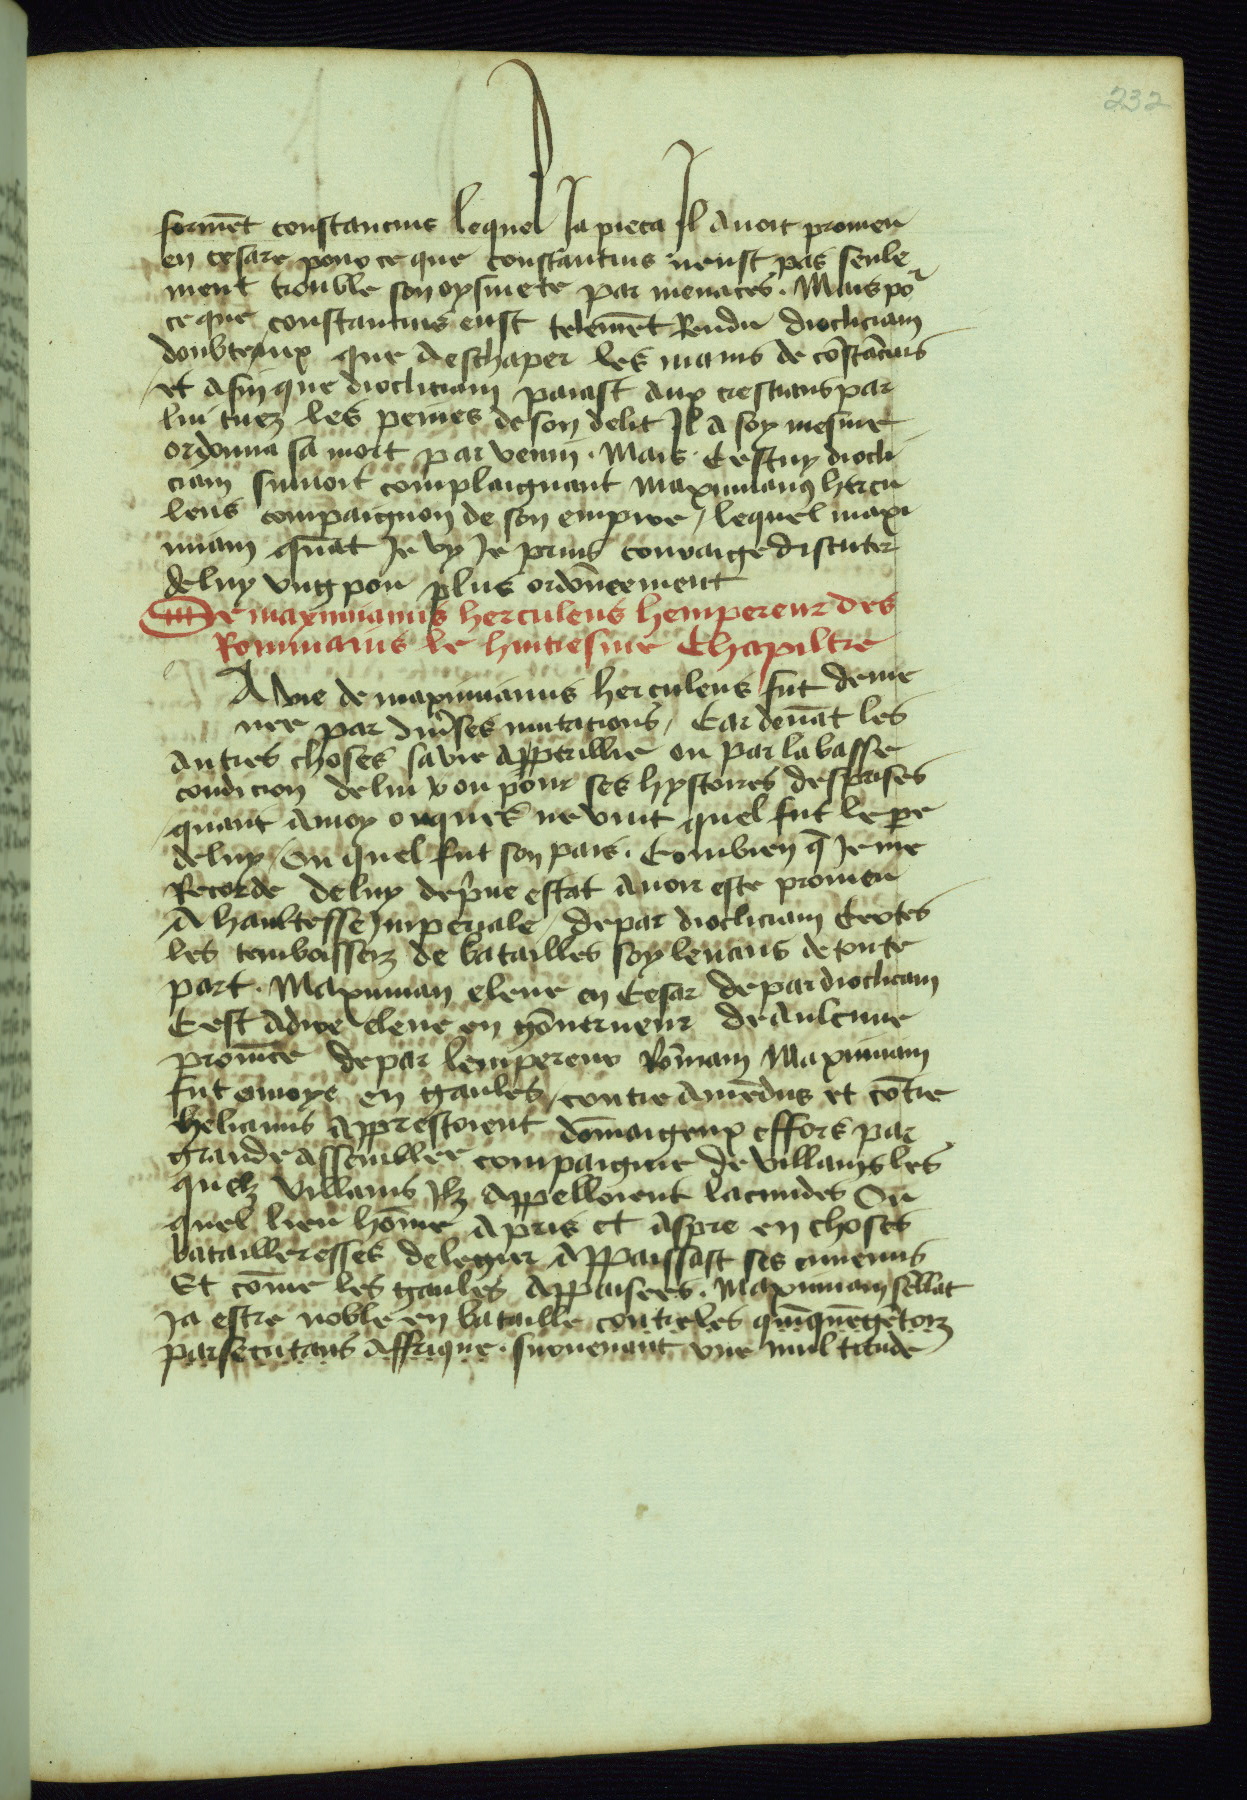 232
formēt constancius lequel Ja pieca Jl Auoit promeu
en cesare pour ce que constantius neust pas seule
ment trouble son oysiuete par menaces. Mais po
ce que constantius eust telemēt Rendu diocliciam
doubteux que deschaper les mains de cōstācius
et Afin que diocliciam paiast Aux crestians par
lui tuez les peines de son delit Jl A soy mesme
ordonna sa mort par venin. Mais Cestuy diocli
ciam suiuoit complaignant Maximianus hercu
leus compaignon de son empire / lequel maxi
miam quāt Je vy Je prins couraige discuter
deluy vng pou plus ordonneement
De maximianus herculeus hempereur des
Rommains le huitiesme Chapiltre
A vie de maximianus herculeus fut deme
nee par diu̾ses mutacions / Car deuāt les
Autres choses sa vie Apperillie ou par la basse
condicion de lui ou pour ses hystoires desprises
quant Amoy onques ne vint quel fut le pe
deluy / Ou quel fut son pais. Combien q̄ Je me
Recorde deluy de pūe estat Auoir este promeu
A haultesse Jmperiale depar diocliciam Certes
les tenboissez de batailles soy leuans de toute
part. Maximian esleue en Cesar depar dioclicām
Cest Adire esleue en gōuerneur de Aulcune
prouīce depar lempereur Rōmam Maximiam
fut enuoye en gaules / contre Amēdus et cōtre
helianus Apprestoient dōmaigeux effors par
grande Assemblee compaignie de villains les
quelz villains Jlz Appelloient bacundes Ou
quel lieu hōme Apris et Aspre en choses
batailleresses de legier Appaissast ses ennemis
Et cōme les gaules Appaisees. Maximiam sēblāt
Ja estre noble en bataille contre les quīquegētorz
parsecutans Affrique. suruenant vne multitude